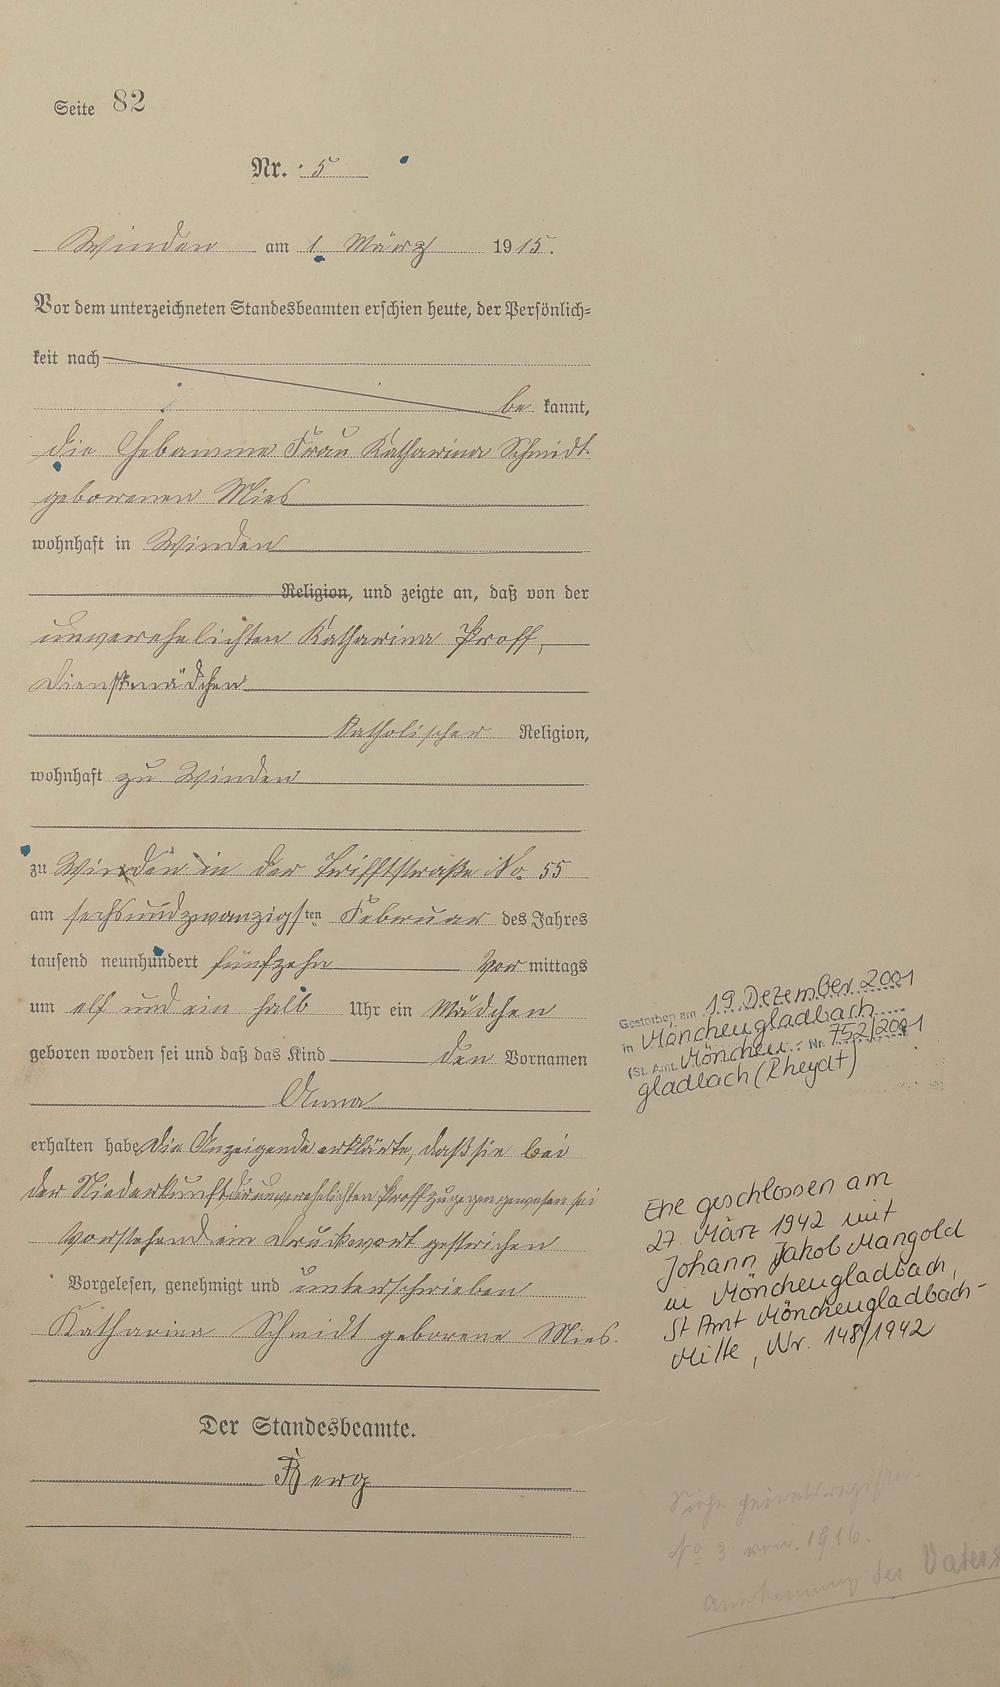 Seite 82
Nr. 5
Winden am 1. März 1915.
Vor dem unterzeichneten Standesbeamten erschien heute, der Persönlich=
keit nach
be kannt,
die Hebamme Frau Katharina Schmidt
geborenen Mies
wohnhaft in Winden
Religion, und zeigte an, daß von der
unverehelichten Katharina Proff,
Dienstmädchen
katholischer Religion,
wohnhaft zu Winden
zu Winden in der Trifftstraße No. 55
am sechsundzwanzigsten Februar des Jahres
tausend neunhundert fünfzehn Vor mittags
um elf und ein halb Uhr ein Mädchen
geboren worden sei und daß das Kind den Vornamen
Anna
erhalten habe. Die Anzeigende erklärte, daß sie bei
der Niederkunft der unverehelichten Proff zugegen gewesen sei
Vorstehend ein Druckwort gestrichen
Vorgelesen, genehmigt und unterschrieben
Katharina Schmidt geborene Mies.
Der Standesbeamte.
Berg
Gestorben am 19. Dezember 2001
in Mönchengladbach
(St. Amt. Mönchen- Nr. 752/2001
gladbach (Rheydt)
Ehe geschlossen am
27. März 1942 mit
Johann Jakob Mangold
in Mönchengladbach,
St Amt Mönchengladbach-
Mitte, Nr. 148/1942
Siehe Heiratsregister
No 3 von 1916.
Anerkennung des Vaters